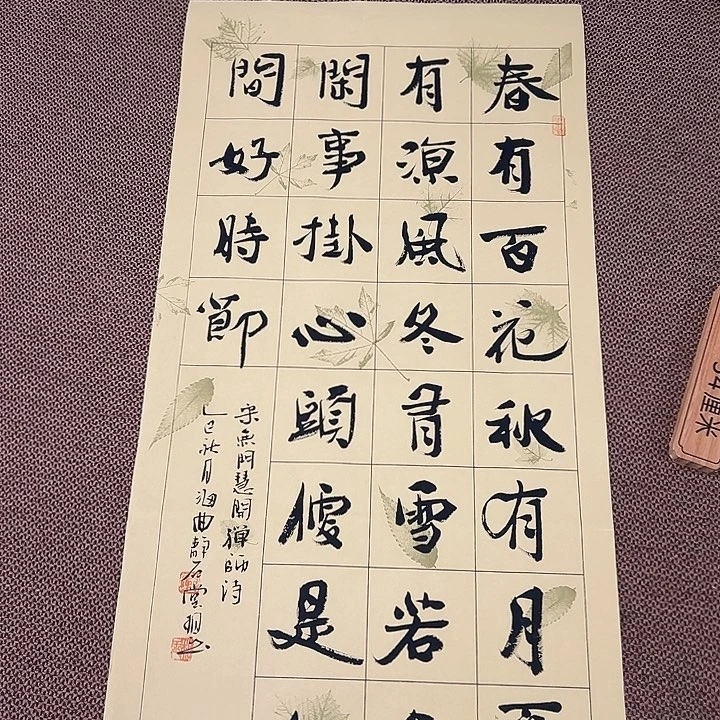 春有百花秋有月
有涼風冬有雪若
閑事掛心頭便是
間好時節
宋無門慧開禪師詩
乙巳秋月海曲靜石堂
厘米